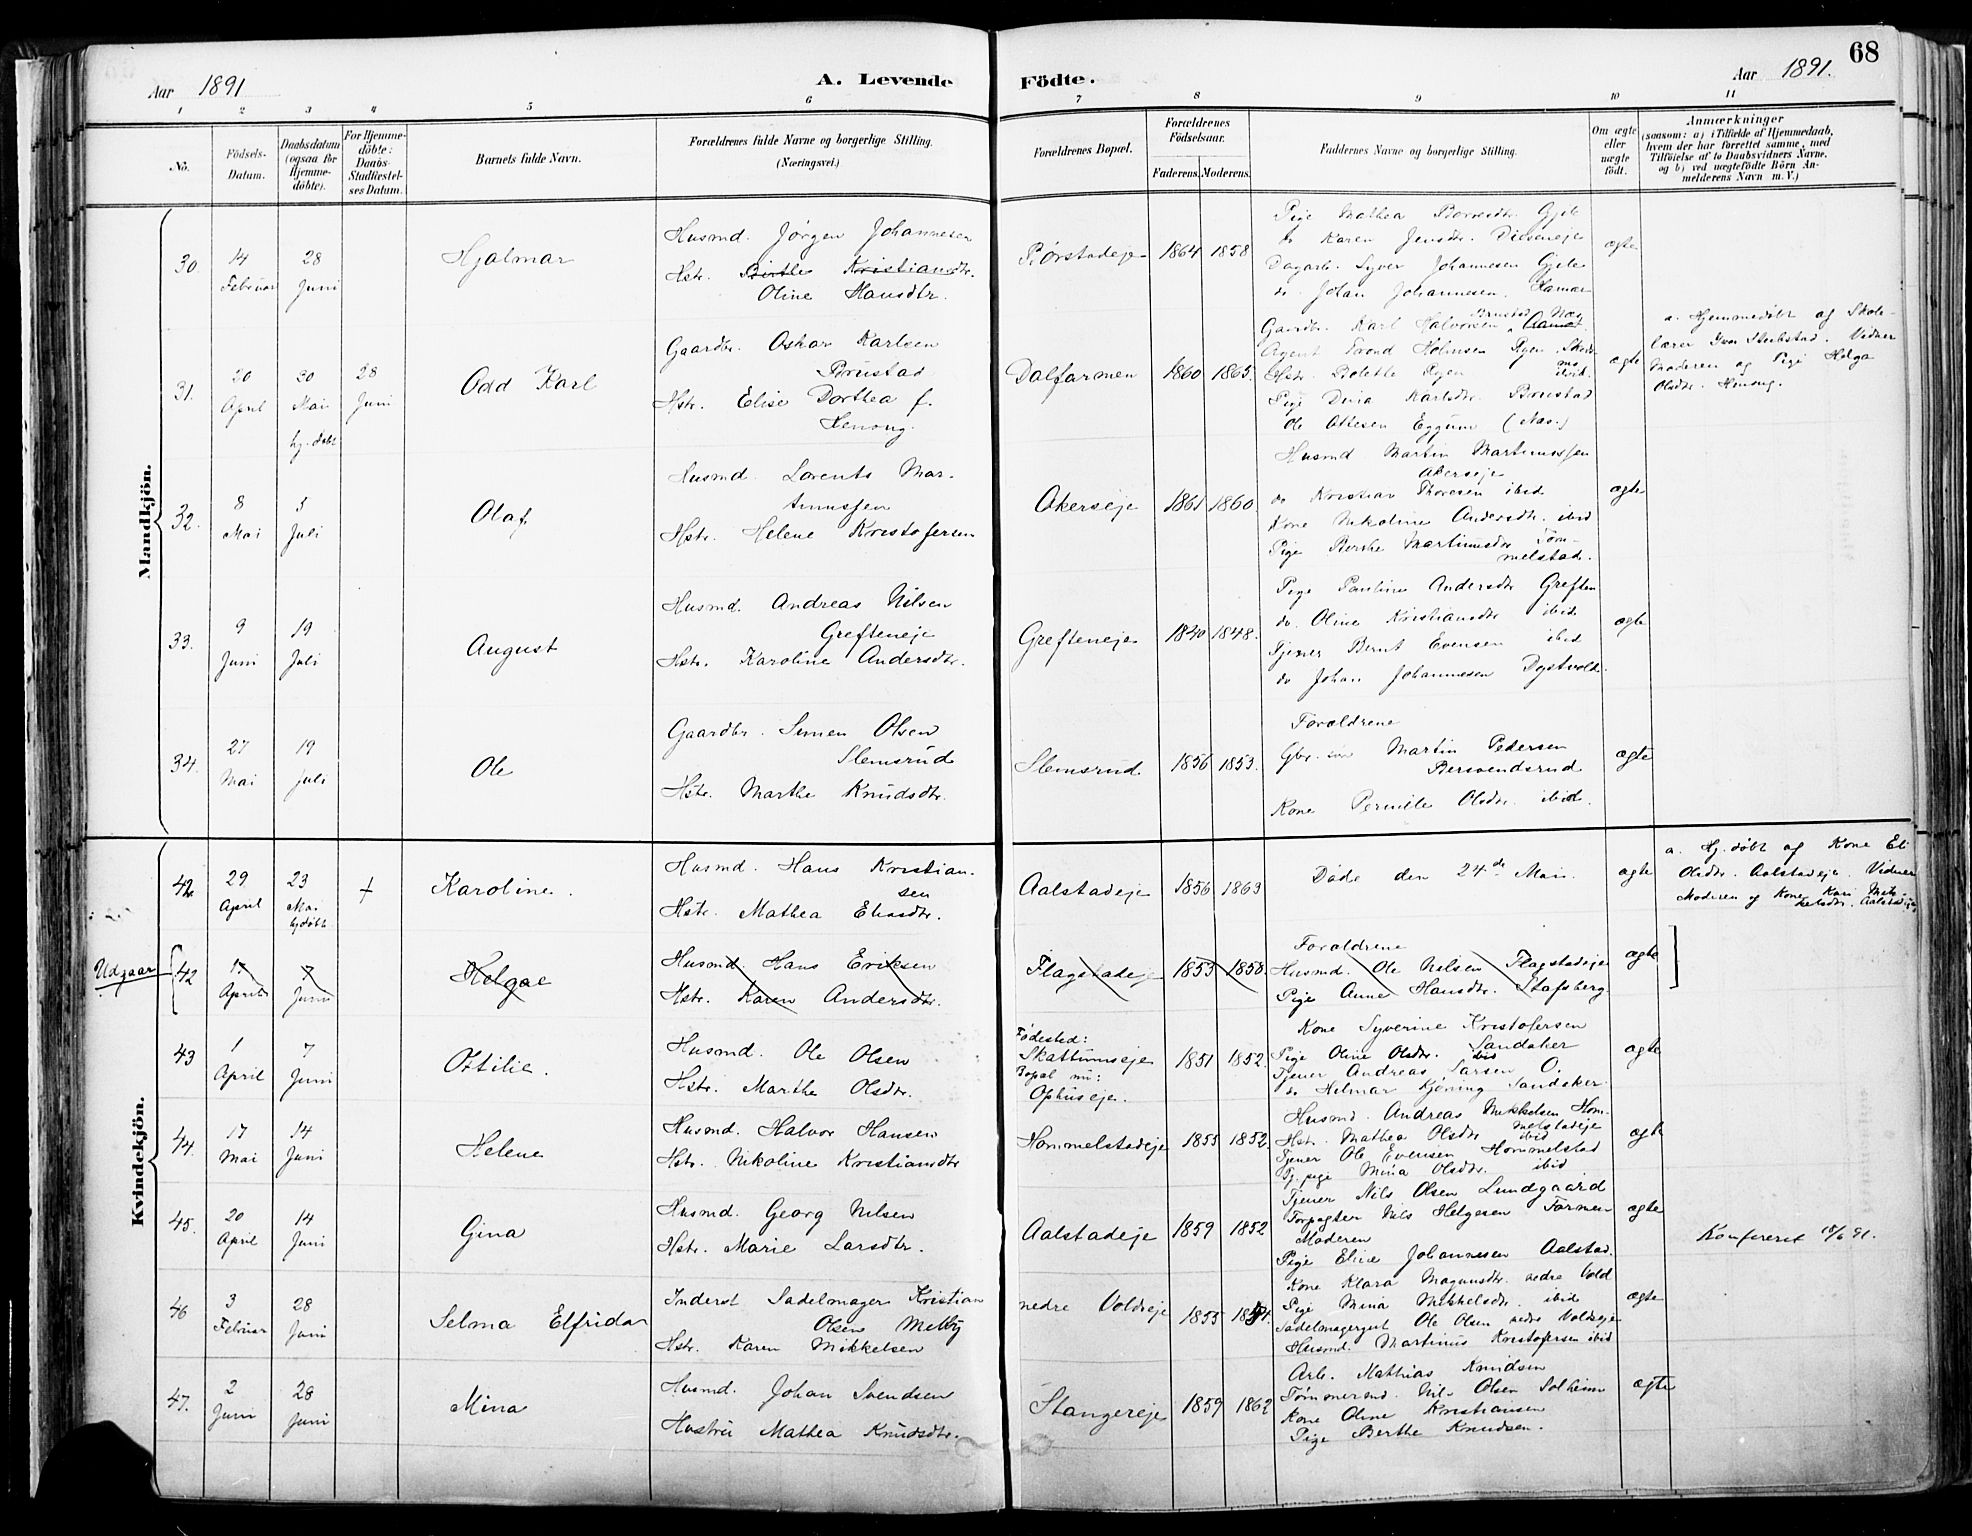 Aar 1891 A. Levende Födte. Aar 1891. 68
1 2 3 4 5 6 7 8 9 10 11
No.
Födsels-Datum.
Daabsdatum (ogsaa for Hjemme-döbte).
For Hjemme-döbte: Daabs-Stadfæstel-ses Datum.
Barnets fulde Navn.
Forældrenes fulde Navne og borgerlige Stilling. (Næringsvei.)
Forældrenes Bopæl.
Forældrenes Födselsaar.
Faderens. Moderens.
Faddernes Navne og borgerlige Stilling.
Om ægte eller uægte födt.
Anmærkninger
(saasom: a) i Tilfælde af Hjemmedaab,
hvem der har forrettet samme, med
Tilföielse af to Daabsvidners Navne,
og b) ved uægtefödte Börn An-
melderens Navn m. V.)
Mandkjön.
30. 14 Februar 28 Juni Hjalmar
Husmd. Jørgen Johannesen
Hstr. Birthe Kristiansdtr.
Oline Hansdtr.
Børstadeje 1864 1858
Pige Mathea
do Karen Jensdtr.
Dagarb. Syver Johannesen Gjile
do. Johan Johannesen. Hamar
ægte
31. 20 April 30 Mai hj. døbt 28 Juni Odd Karl
Gaardbr. Oskar Karlsen
Brustad
Hstr. Elise Dorthea f.
Henong.
Dalfarmen 1860 1865.
Gaardbr. Karl Halvorsen Brustad Næs
Agent Holmsen Ryen
Hstr. Bolette Ryen
Pige Karlsdtr. Brustad
Ole Ottesen Eggum (Næs.)
ægte
a. Hjemmedøbt af Skole-
lærer Iver Skibstad. Vidner
Moderen og Pige Helga
Olsdtr. Henong.
32. 8 Mai 5 Juli Olaf
Husmd. Lorents Mar-
tinussen
Hstr. Helene Kristofersen
Akerseje 1861 1860.
Husmd Martin Martinussen
Akerseje
do Kristian Thoresen ibid
Kone Nikoline Andersdtr. ibid
Pige Berthe Martinusdtr Tom-
melstad.
ægte
33. 9 Juni 19 Juli August
Husmd. Andreas Nilsen
Grefteneje
Hstr. Karoline Andersdtr.
Grefteneje 1840 1848.
Pige Pauline Andersdtr Greften
do. Oline Kristiansdtr ibid
Tjener Bernt Evensen ibid
do Johan Johannesen Dystvold
ægte
34. 27 Mai 19 Juli Ole
Gaardbr. Simen Olsen
Slemsrud
Hstr. Marthe Knudsdtr.
Slemsrud 1856 1853.
Forældrene
Gbr. Martin Pedersen
Bersvendsrud
Kone Pernille Olsdtr. ibid.
ægte
Kvindekjön.
42 29 April 23 Mai hjdøbt + Karoline.
Husmd. Hans Kristian-
sen
Hstr. Mathea Eliasdtr.
Aalstadeje 1856 1863
Døde den 24de Mai.
ægte
a. Hj. døbt af Kone Eli
Olsdtr. Aalstadeje. Vidner
Moderen og Kone Kari Mik-
kelsdtr. Aalstadeje
Udgaar 42 17 April 7 Juni Helga
Husmd. Hans Eriksen
Hstr. Karen Andersdtr.
Flagstadeje 1853 1850.
Forældrene
Husmd. Ole Nilsen Flagstadeje
Pige Anne Hansdtr. Stafsberg
ægte
43 1 April 7 Juni Ottilie.
Husmd. Ole Olsen
Hstr. Marthe Olsdtr.
Fødested:
Skattumseje
Bopæl nu:
Ophuseje.
1851 1852.
Kone Syverine Kristofersen
Sandaker
Pige Oline Olsdtr. ibid
Tjener Andreas Larsen O.
do Hilmar Kjøning Sandaker
ægte
44. 17 Mai 14 Juni Helene
Husmd. Halvor Hansen
Hstr. Nikoline Kristiansdtr
Hommelstadeje 1855 1852.
Husmd. Andreas Mikkelsen Hom-
melstadeje
Hstr. Mathea Olsdtr ibid
Tjener Ole Evensen Hommelstad
Tj. pige Mina Olsdtr. ibid
ægte
45. 20 April 14 Juni Gina
Husmd. Georg Nilsen
Hstr. Marie Larsdtr.
Aalstadeje 1859 1852
Tjener Nils Olsen Lundgaard
Forpagter Nils Helgesen Farmen
Moderen
Pige Elise Johannesen Aalstad.
ægte
Konfereret 18/6 91.
46 3 Februar 28 Juni Selma Elfrida
Inderst Sadelmager Kristian
Olsen Melby
Hstr. Karen Mikkelsen
nedre Voldseje 1855 1854.
Kone Klara Magnusdtr. nedre Vold
Pige Mina Mikkelsdtr. ibid
Sadelmagergut Ole Olsen nedre Voldseje
Husmd. Martinus Kristofersen ibid
ægte
47. 2 Juni 28 Juni Mina
Husmd. Johan Svendsen
Hustru Mathea Knudsdtr.
Stangereje 1859 1862
Arb. Mathias Knudsen
Tømmermd. Nils Olsen Solheim
Kone Oline Kristiansen
Pige Berthe Knudsen.
ægte